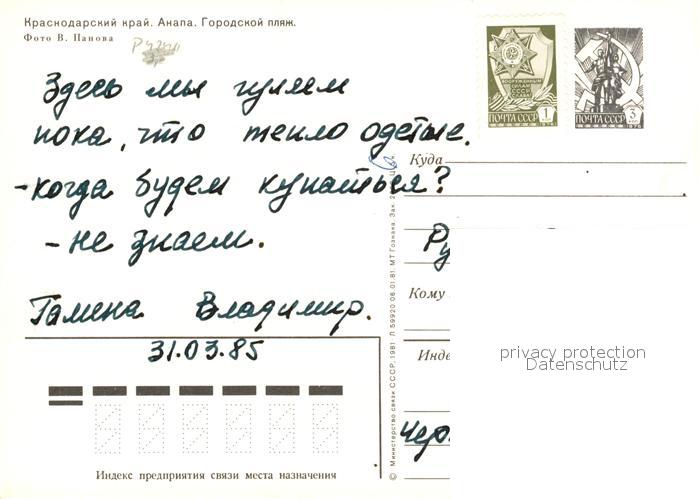 Краснодарский край. Анапа. Городской пляж.
Фото В. Панова
Здесь мы гуляем
пока, что тепло одетые.
- когда будем купаться?
- не знаем.
Галина Владимир.
31.03.85
ВООРУЖЕННЫМ СИЛАМ СССР СЛАВА!
ПОЧТА СССР 1
ПОЧТА СССР 3
Куда
Ру
Кому
Инде
privacy protection
Datenschutz
Чер.
Индекс предприятия связи места назначения
© Министерство связи СССР. 1981 Л 59920 06.01.81. МТ Гознака. Зак.